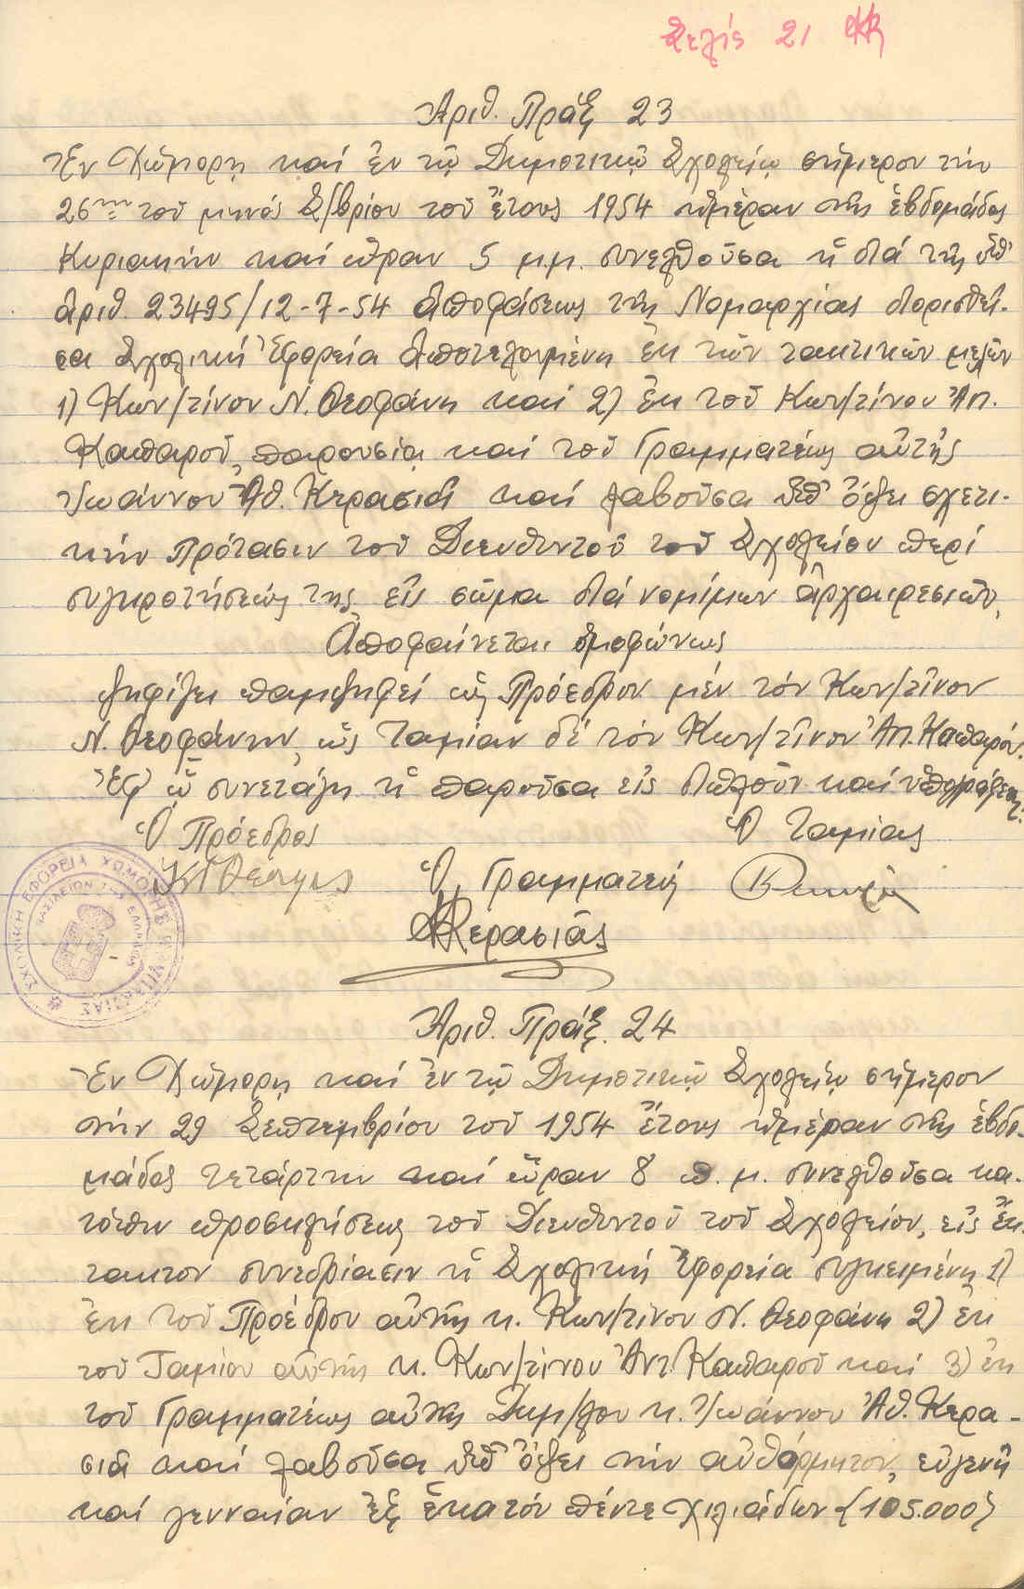 Σελίς 21
Ἀριθ. Πράξ 23
Ἐν Χώμορῃ καί ἐν τῷ Δημοτικῷ Σχολείῳ σήμερον τήν
26ην τοῦ μηνός Σ/βρίου τοῦ ἔτους 1954 ἡμέραν τῆς ἑβδομάδος
Κυριακήν καί ὥραν 5 μ.μ. συνελθοῦσα ἡ διά τῆς ὑπ'
ἀριθ. 23495/12-7-54 ἀποφάσεως τῆς Νομαρχίας διορισθεῖ-
σα Σχολική Ἐφορεία ἀποτελουμένη ἐκ τῶν τακτικῶν μελῶν
1) Κων/τίνου Ν. Θεοφάνη καί 2) ἐκ τοῦ Κων/τίνου Ἀπ.
Καπαροῦ, παρουσίᾳ καί τοῦ Γραμματέως αὐτῆς
Ἰωάννου Ἀθ. Κερασιᾶ καί λαβοῦσα ὑπ' ὄψει σχετι-
κήν πρότασιν τοῦ Διευθυντοῦ τοῦ Σχολείου περί
συγκροτήσεώς της εἰς σῶμα διά νομίμων ἀρχαιρεσιῶν,
Ἀποφαίνεται ὁμοφώνως
ψηφίζει παμψηφεί ὡς Πρόεδρον μέν τόν Κων/τῖνον
Ν. Θεοφάνην, ὡς Ταμίαν δέ τόν Κων/τῖνον Ἀπ. Καπαρόν.
Ἐφ' ᾧ συνετάγη ἡ παροῦσα εἰς διπλοῦν καί ὑπογράφεται:
Ὁ Πρόεδρος Ὁ Ταμίας
Ὁ Γραμματεύς
Κερασιᾶς
ΣΧΟΛΙΚΗ ΕΦΟΡΕΙΑ ΧΩΜΟΡΗΣ ΝΑΥΠΑΚΤΙΑΣ
ΒΑΣΙΛΕΙΟΝ ΤΗΣ ΕΛΛΑΔΟΣ
Ἀριθ. Πράξ. 24
Ἐν Χώμορῃ καί ἐν τῷ Δημοτικῷ Σχολείῳ σήμερον
τήν 29 Σεπτεμβρίου τοῦ 1954 ἔτους ἡμέραν τῆς ἑβδο-
μάδος τετάρτην καί ὥραν 8 π.μ. συνελθοῦσα κα-
τόπιν προσκλήσεως τοῦ Διευθυντοῦ τοῦ Σχολείου, εἰς ἔκ-
τακτον συνεδρίασιν ἡ Σχολική Ἐφορεία συγκειμένη 1)
ἐκ τοῦ Προέδρου αὐτῆς κ. Κων/τίνου Ν. Θεοφάνη 2) ἐκ
τοῦ Ταμίου αὐτῆς κ. Κων/τίνου Ἀντ. Καπαροῦ καί 3) ἐκ
τοῦ Γραμματέως αὐτῆς Δημ/λου κ. Ἰωάννου Ἀθ. Κερα-
σιᾶ καί λαβοῦσα ὑπ' ὄψει τήν αὐθόρμητον, εὐγενῆ
καί γενναίαν ἐξ ἑκατόν πέντε χιλιάδων (105.000)